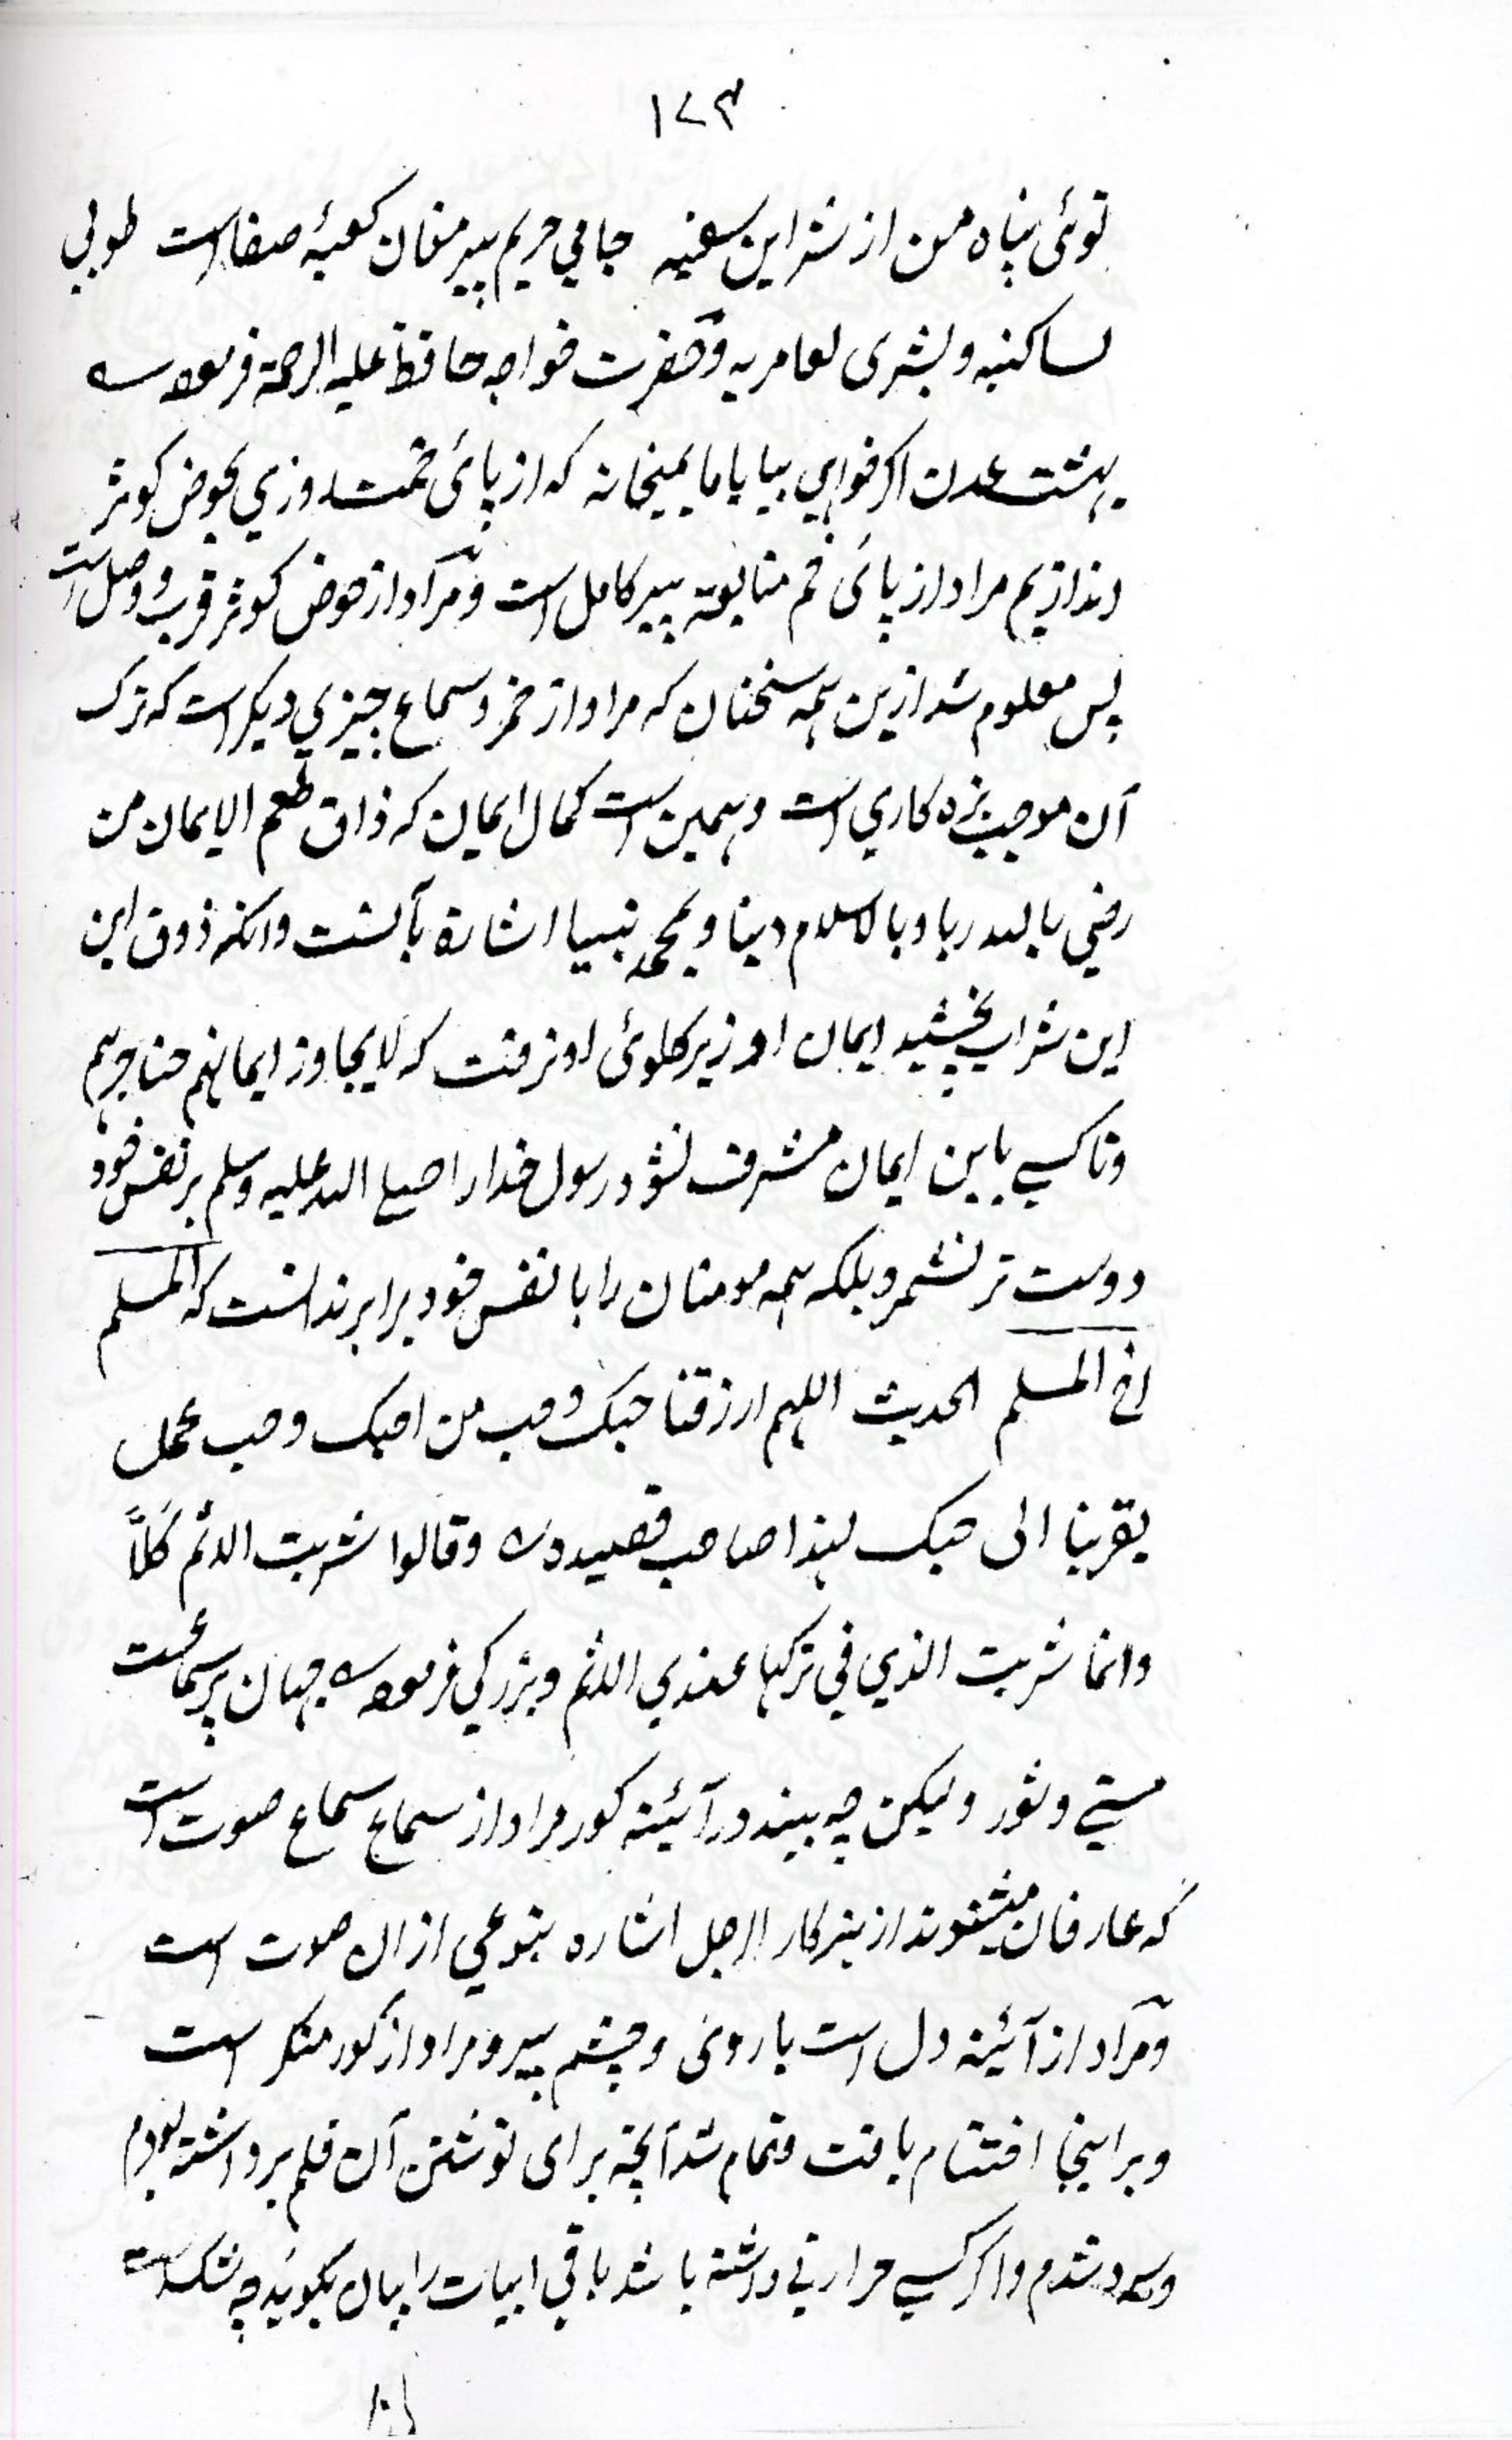 ١٧٣
توئی پناه من از شر این سفینه جامي حریم پیر مغان کعبۀ صفا است طوبی
لساکنیه و بشری لعامریه و حضرت خواجه حافظ علیه الرحمة فرموده
بهشت عدن اکر خواهي بیا با ما بمیخانه که از پائی خمت روزي بحوض کوثر
اندازیم مراد از پائی خم متابعة پیر کامل است و مراد از حوض کوثر قرب و وصل است
پس معلوم شد ازین همه سخنان که مراد از خمر و سماع چیزي دیکر است که ترک
آن موجب بزه کاري است و همین است کمال ایمان که ذاق طعم الایمان من
رضي بالله ربا و بالاسلام دینا و بمحمد نبیا اشارة بآنست وانکه ذوق این
این شراب بچشید ایمان او زیر کلوئی او نرفت که لا یجاوز ایمانهم حناجرهم
و تا کسي باین ایمان مشرف نشود رسول خدا را صلی الله علیه وسلم بر نفس خود
دوست تر نشمرد بلکه همه مومنان را با نفس خود برابر ندانست که المسلم
اخ المسلم الحدیث اللهم ارزقنا حبک و حب من احبک و حب عمل
یقربنا الی حبک لهذا صاحب قصیده وقالوا شربت الاثم کلاّ
وانما شربت الذي في ترکها عندي الاثم و بزرکي فرموده جهان پر سماعست
مستي و شور ولیکن چه بیند در آئینه کور مراد از سماع سماع صوت است
که عارفان میشنوند از هر کار الرجل اشاره بنوعي از ان صوت است
و مراد از آئینه دل است یا روئی و چشم پیر و مراد از کور منکر است
و بر اینجا اختتام یافت و تمام شد آنچه برای نوشتن آن قلم برداشته بودم
و سرد شدم و اکر کسي حرارتي داشته باشد باقي ابیات را بیان بکوید چه شکست